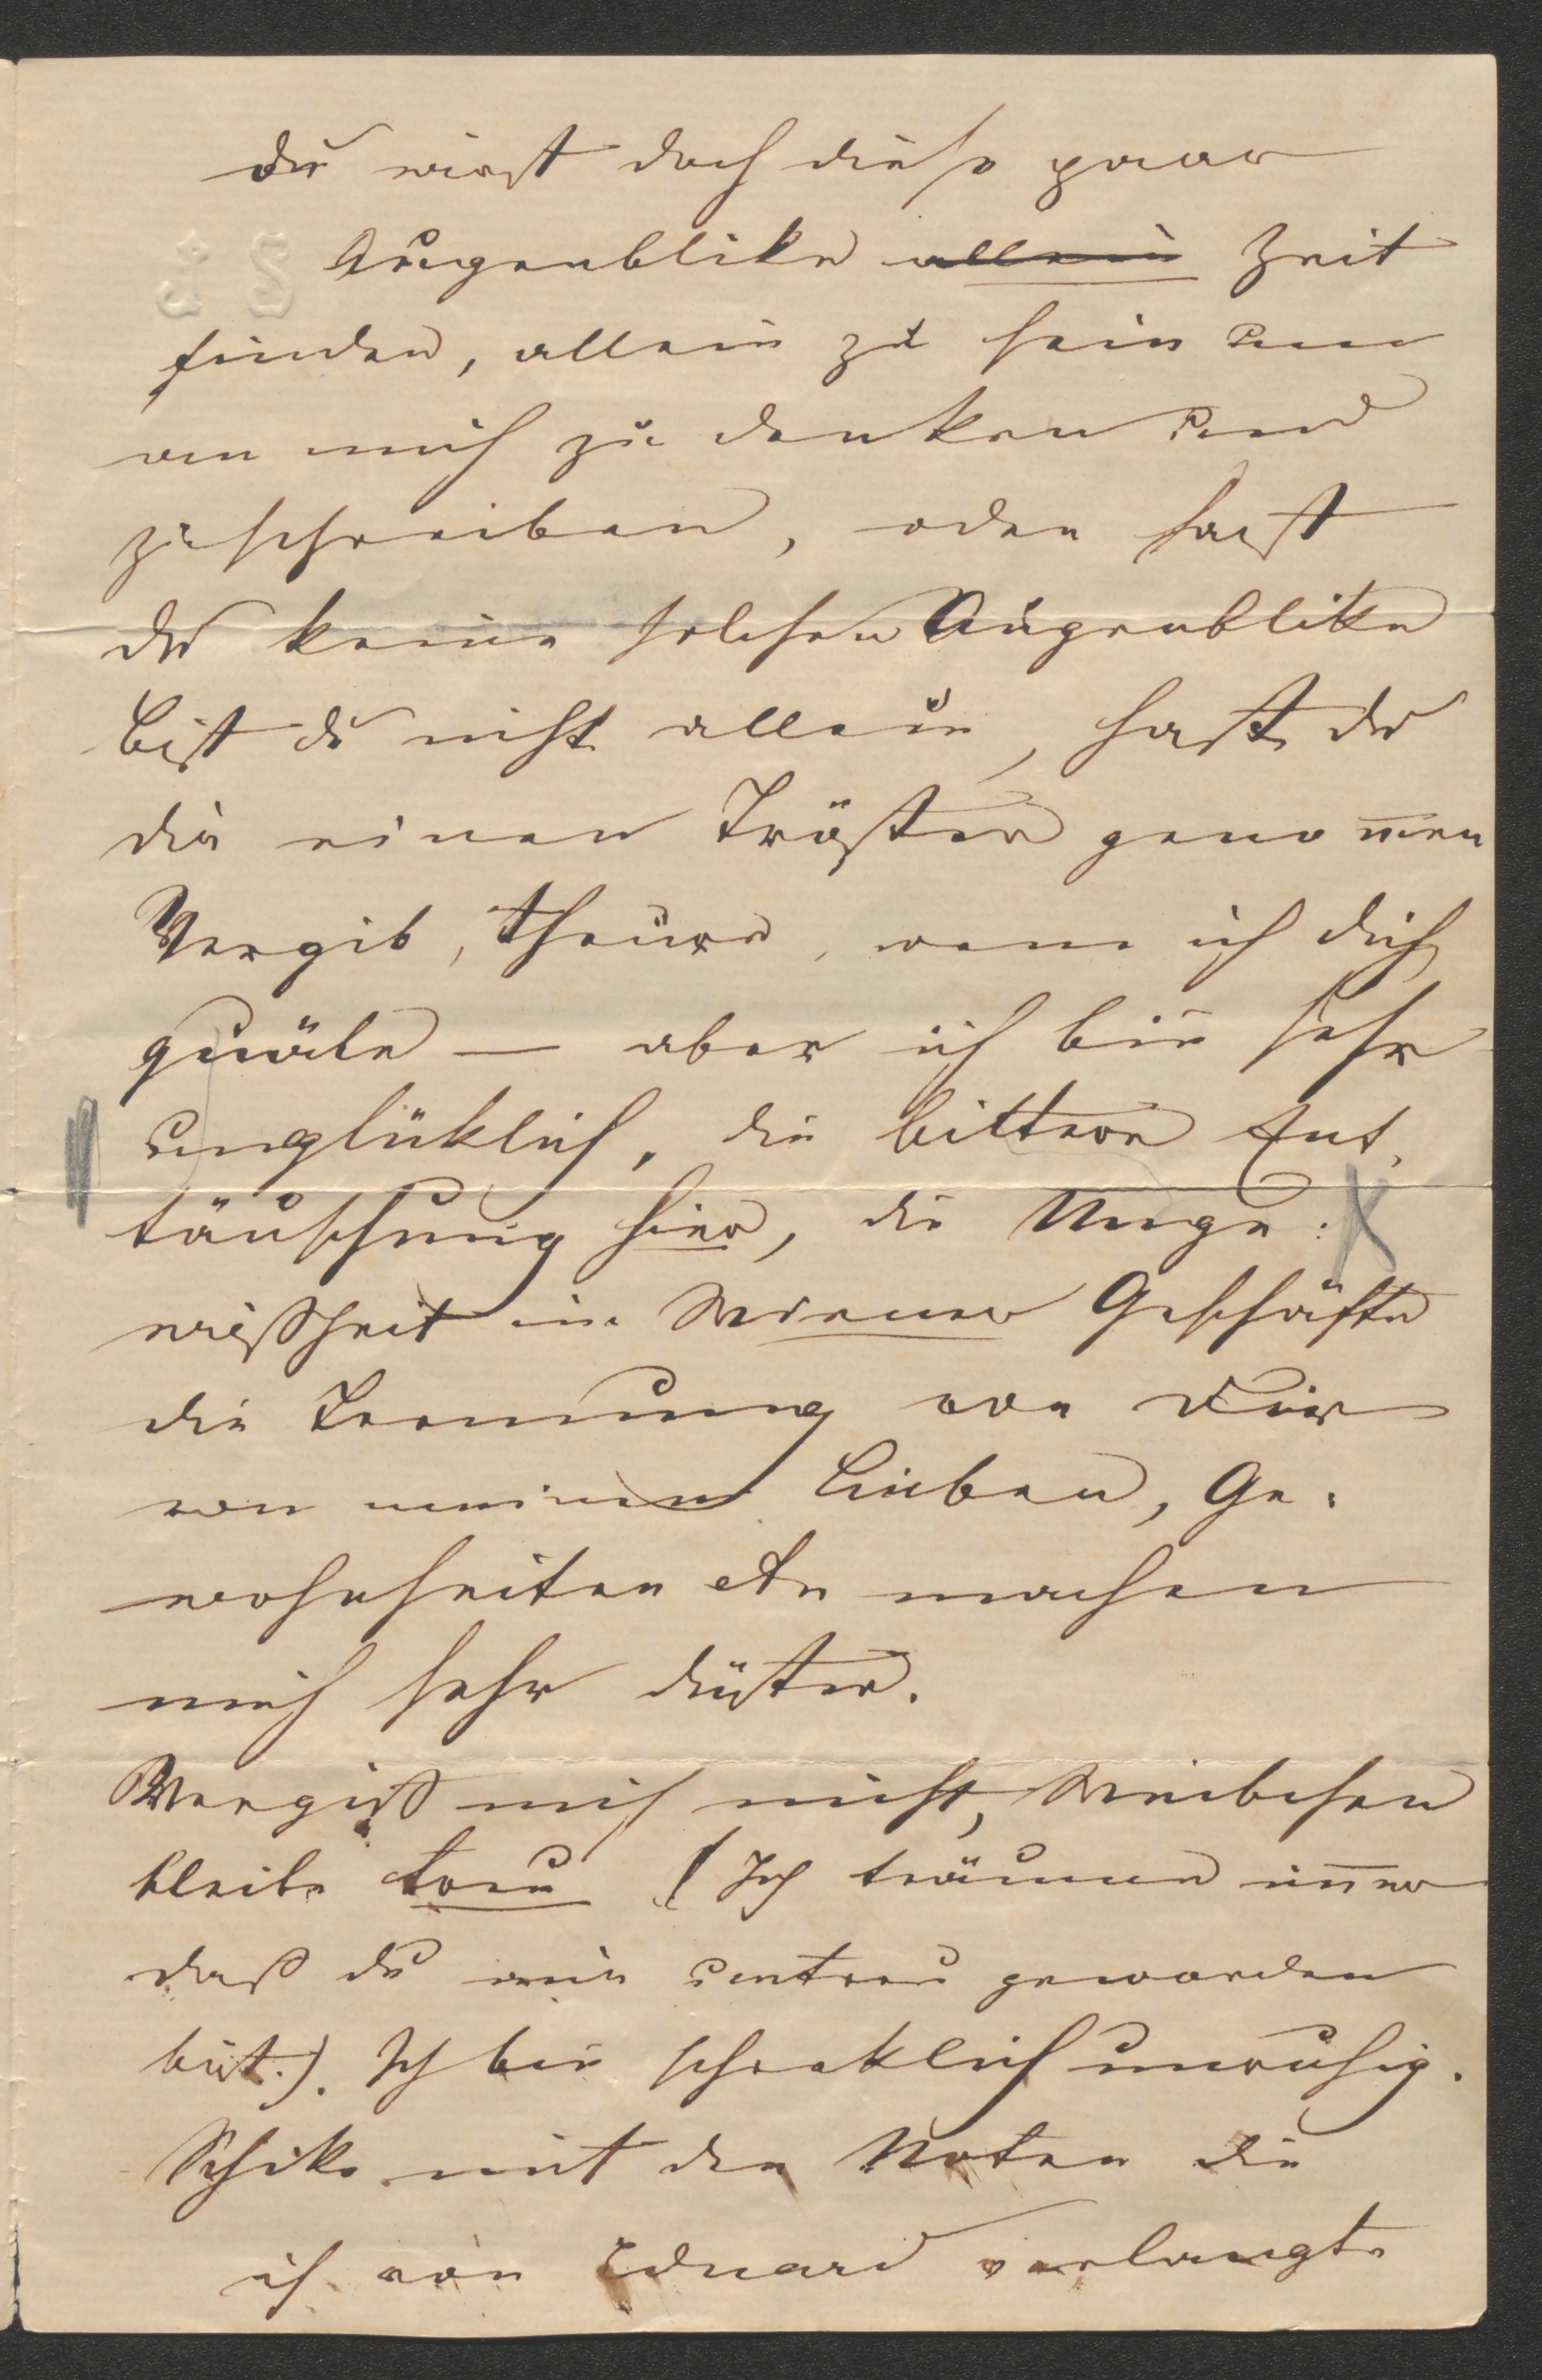 du wirst doch diese paar
Augenblike allein Zeit
finden, allein zu sein um
an mich zu denken und
zu schreiben, oder hast
du keine solchen Augenblike
bist du nicht allein, hast du
dir einen Tröster genom̅en
Vergib, Theure, wenn ich dich
quäle — aber ich bin sehr
unglüklich, die bittere Ent-
täuschung hier, die Unge-
wißheit im Wiener Geschäfte
die Trennung von Dir
von meinen Lieben, Ge-
wohnheiten etc machen
mich sehr düster.
Vergiß mich nicht, Weibchen
bleibe treu (Ich träume im̅er
daß du mir untreu geworden
bist.). Ich bin schreklich unruhig.
Schike mit den Noten die
ich von Eduard verlangte